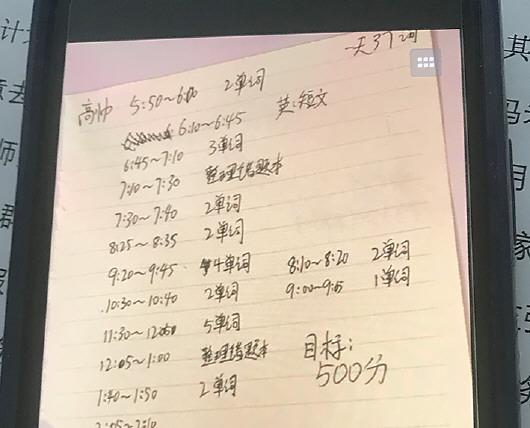 一天37词
高帅 5:50~6:00 2单词
6:10~6:45 英:短文
6:45~7:10 3单词
7:10~7:30 整理错题本
7:30~7:40 2单词
8:25~8:35 2单词
9:20~9:45 4单词 8:10~8:20 2单词
10:30~10:40 2单词 9:00~9:05 1单词
11:30~12:00 5单词
12:05~1:00 整理错题本
目标:
500分
1:40~1:50 2单词
2:05~2:10